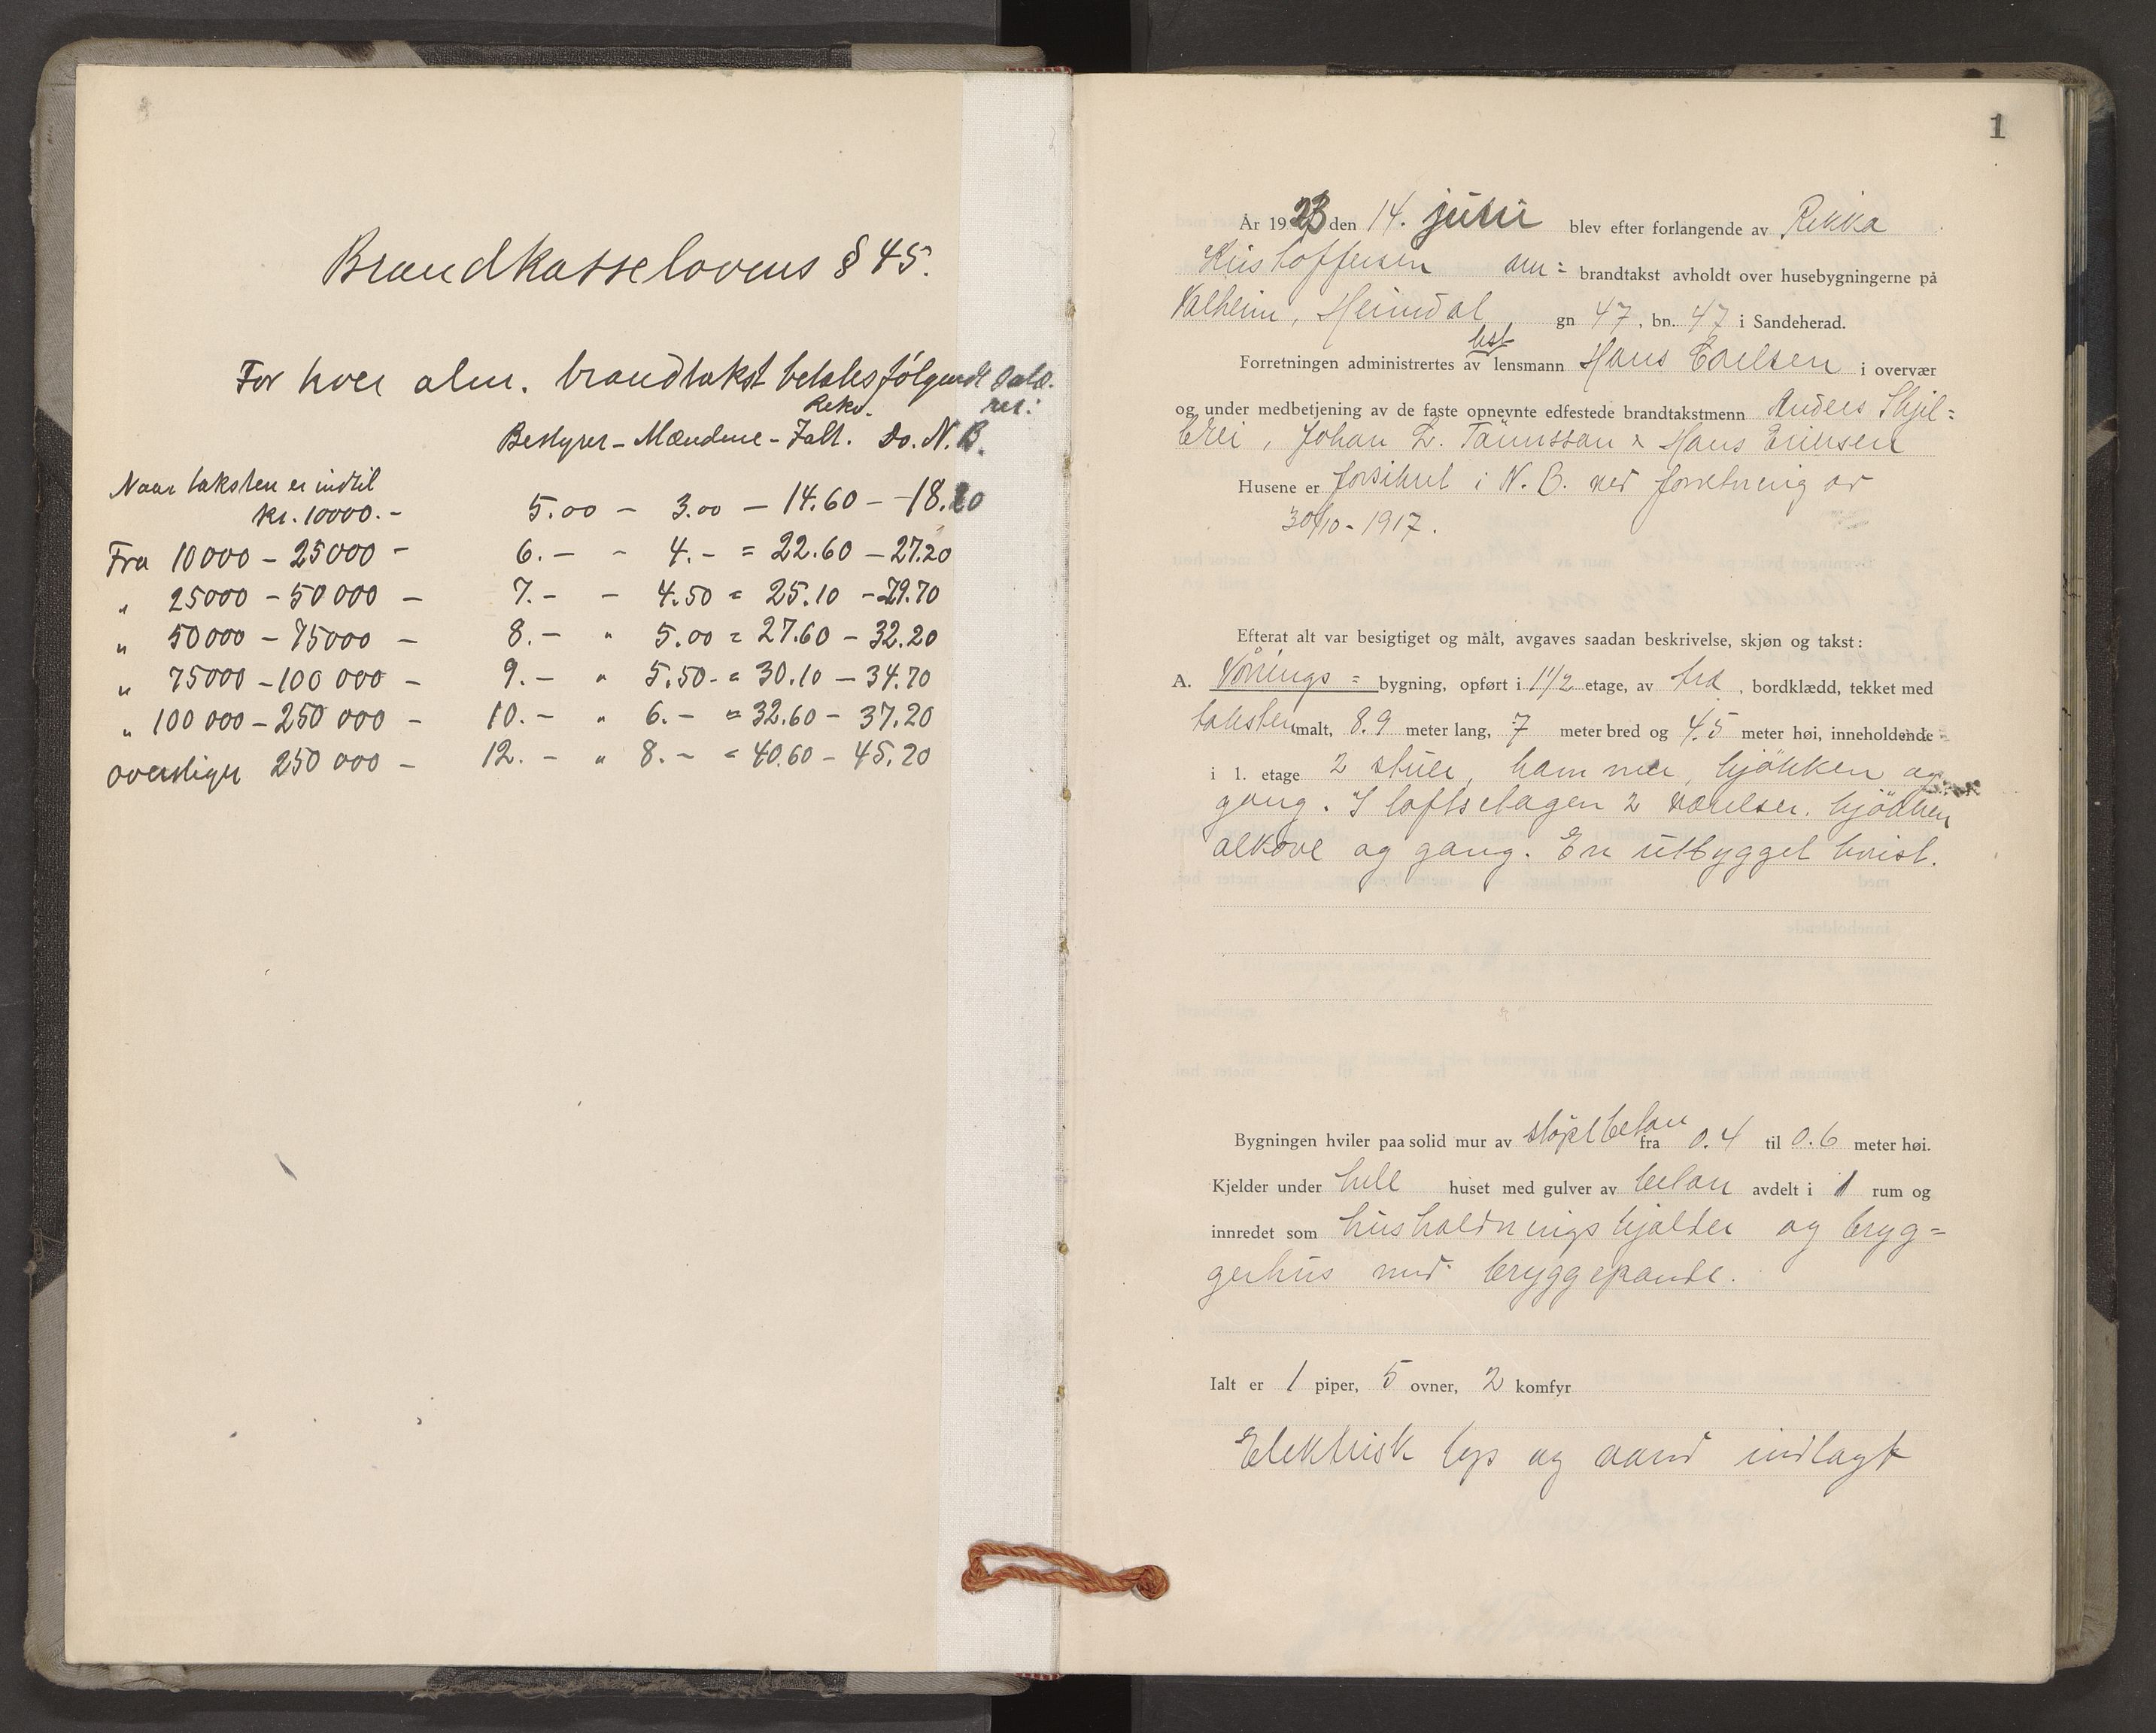 Brandkasselovens § 45.
For hver alm. brandtakst betales følgende
Rekv.
Bestyrer - Mændene - Ialt. Do. N. B.
Naar taksten er indtil
kr. 10000.- 5.00 - 3.00 - 14.60 - 18.20
Fra 10000 - 25000 - 6.- - 4.- = 22.60 - 27.20
" 25000 - 50000 - 7.- - 4.50 = 25.10 - 29.70
" 50000 - 75000 - 8.- " 5.00 = 27.60 - 32.20
" 75000 - 100 000 - 9.- " 5.50 - = 30.10 - 34.70
" 100 000 - 250 000 - 10.- " 6.- = 32.60 - 37.20
overstiger 250 000 - 12.- " 8.- = 40.60 - 45.20
1
År 1923 den 14. juni blev efter forlangende av Rikka
Kristoffersen om= brandtakst avholdt over husebygningerne på
Valheim, Heimdal, gn 47, bn. 47 i Sandeherad.
bst
Forretningen administrertes av lensmann Hans Carlsen i overvær
og under medbetjening av de faste opnevnte edfestede brandtakstmenn Anders Skjel=
brei, Johan L. Tønnssen & Hans Eriksen
Husene er forsikret i N. B. ved forretning av
30/10 - 1917.
Efterat alt var besigtiget og målt, avgaves saadan beskrivelse, skjøn og takst:
A. Vånings= bygning, opført i 1 1/2 etage, av træ, bordklædd, tekket med
taksten malt, 8.9 meter lang, 7 meter bred og 4.5 meter høi, inneholdende
i 1. etage 2 stuer, kammer, kjøkken og
gang. I loftsetagen 2 værelser. kjøkken
alkove og gang. En utbygget kvist.
Bygningen hviler paa solid mur av støpt beton fra 0.4 til 0.6 meter høi.
Kjelder under hele huset med gulver av beton avdelt i 1 rum og
innredet som husholdningskjælder og bryg=
gerhus med bryggepande.
Ialt er 1 piper, 5 ovner, 2 komfyr
Elektrisk lys og vand indlagt